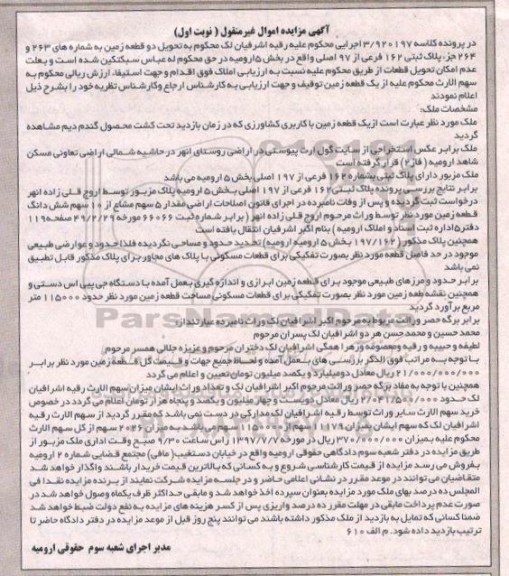 آگهی مزایده اموال غیرمنقول ( نوبت اول)
در پرونده کلاسه ۳/۹۲۰۱۹۷ اجرایی محکوم علیه رقیه اشرفیان لک محکوم به تحویل دو قطعه زمین به شماره های ۲۶۳ و
۲۶۴ جزء پلاک ثبتی ۱۶۲ فرعی از ۹۷ اصلی واقع در بخش ۵ ارومیه در حق محکوم له عباس سبکتکین شده است و بعلت
عدم امکان تحویل قطعات از طریق محکوم علیه نسبت به ارزیابی املاک فوق اقدام و جهت استیفاء ارزش ریالی محکوم به
سهم الارث محکوم علیه از یک قطعه زمین توقیف و جهت ارزیابی به کارشناس ارجاع وکارشناس نظریه خود را بشرح ذیل
اعلام نمودند
مشخصات ملک:
ملک مورد نظر عبارت است ازیک قطعه زمین با کاربری کشاورزی که در زمان بازدید تحت کشت محصول گندم دیم مشاهده
گردید
ملک برابر عکس استخراجی از سایت گوگل ارث پیوستی در اراضی روستای انهر در حاشیه شمالی اراضی تعاونی مسکن
شاهد ارومیه ( فاز ۲) قرار گرفته است
ملک مزبور دارای پلاک ثبتی بشماره ۱۶۲ فرعی از ۱۹۷ اصلی بخش ۵ ارومیه می باشد
برابر نتایج بررسی پرونده پلاک ثبتی ۱۶۲ فرعی از ۱۹۷ اصلی بخش ۵ ارومیه پلاک مزبور توسط اروج قلی زاده انهر
درخواست ثبت گردیده و پس از وفات نامبرده در اجرای قانون اصلاحات اراضی مقدار ۵ سهم مشاع از ۱۰ سهم شش دانگ
قطعه زمین مورد نظر توسط وراث مرحوم اروج قلی زاده انهر ( برابر شماره ثبت ۶۶۰۶۶ مورخه ۴۹/۲/۲۹ صفحه ۱۱۹
دفتر ۵ اداره ثبت اسناد و املاک ارومیه ) بنام اکبر اشرفیان انتقال یافته است
همچنین پلاک مذکور (۱۹۷/۱۶۲ بخش ۵ ارومیه) تحدید حدود و مساحی نگردیده فلذا حدود و عوارضی طبیعی
موجود در حد فاصل قطعه مورد نظر بصورت تفکیکی برای قطعات مسکونی با پلاک های مجاور برای پلاک مذکور قابل تطبیق
نمی باشد
برابر حدود و مرزهای طبیعی موجود برای قطعه زمین ابرازی و اندازه گیری بعمل آمده با دستگاه جی پی اس دستی و
همچنین نقشه قطعه زمین مورد نظر بصورت تفکیکی برای قطعات مسکونی مساحت قطعه زمین مورد نظر حدود ۱۱۵۰۰۰ متر
مربع برآورد گردید
برابر برگه حصر وراثت مربوط به مرحوم اکبر اشرافیان لک وراث نامبرده عبارتنداز:
محمد حسین و محمد حسن هر دو اشرافیان لک پسران مرحوم
لطیفه و حبیبه و رقیه و معصومه و زهرا همگی اشرافیان لک دختران مرحوم و عزیزه جلالی همسر مرحوم
با توجه به مراتب فوق الذکر بررسی های بعمل آمده و لحاظ جمیع جهات و قیمت کل قطعه زمین مورد نظر برابر
۲۱/۰۰۰/۰۰۰/۰۰۰ ریال معادل دومیلیارد و یکصد میلیون تومان تعیین و اعلام می گردد
همچنین با توجه به مفاد برگه حصر وراثت مرحوم اکبر اشرافیان لک و تعداد وراث ایشان میزان سهم الارث رقیه اشرافیان
لک حدود ۲/۰۴۱/۵۰۰/۰۰۰ ریال معادل دویست و چهار میلیون و یکصد و پنجاه هزار تومان اعلام می گردد در خصوص
خرید سهم الارث سایر وراث توسط رقیه اشرافیان لک مدارکی در دست نمی باشد که مقرر گردید از سهم الارث رقیه
اشرافیان لک که سهم ایشان بمیزان ۱۱۱۷۹ سهم از ۱۱۵۰۰۰ سهم می باشد به میزان ۲۰۲۶ سهم از کل سهم الارث
محکوم علیه بمیزان ۳۷۰/۰۰۰/۰۰۰ ریال در مورخه ۱۳۹۷/۷/۷ راس ساعت ۹/۳۰ صبح وقت اداری ملک مزبور از
طریق مزایده در دفتر شعبه سوم دادگاهی حقوقی ارومیه واقع در خیابان دستغیب( مافی) مجتمع قضایی شماره ۲ ارومیه
بفروش می رسد مزایده از قیمت کارشناسی شروع و به کسانی که بالاترین قیمت خریدار باشند واگذار خواهد شد
متقاضیان می توانند در موعد مقرر در نشانی اعلامی حاضر و در جلسه مزایده شرکت نمایند از برنده مزایده نقدا فی
المجلس ده درصد بهای ملک مورد مزایده بعنوان سپرده اخذ خواهد شد و مابقی حداکثر ظرف یکماه وصول خواهد شد در
صورت عدم پرداخت مابقی در مهلت مقرر ده درصد واریزی پس از کسر هزینه های مزایده به نفع دولت ضبط خواهد شد
ضمنا کسانی که تمایل به بازدید از ملک مذکور داشته باشند می توانند پنج روز قبل از موعد مزایده در دفتر دادگاه حاضر تا
ترتیب بازدید داده شود. م الف ۶۱۰
مدیر اجرای شعبه سوم حقوقی ارومیه